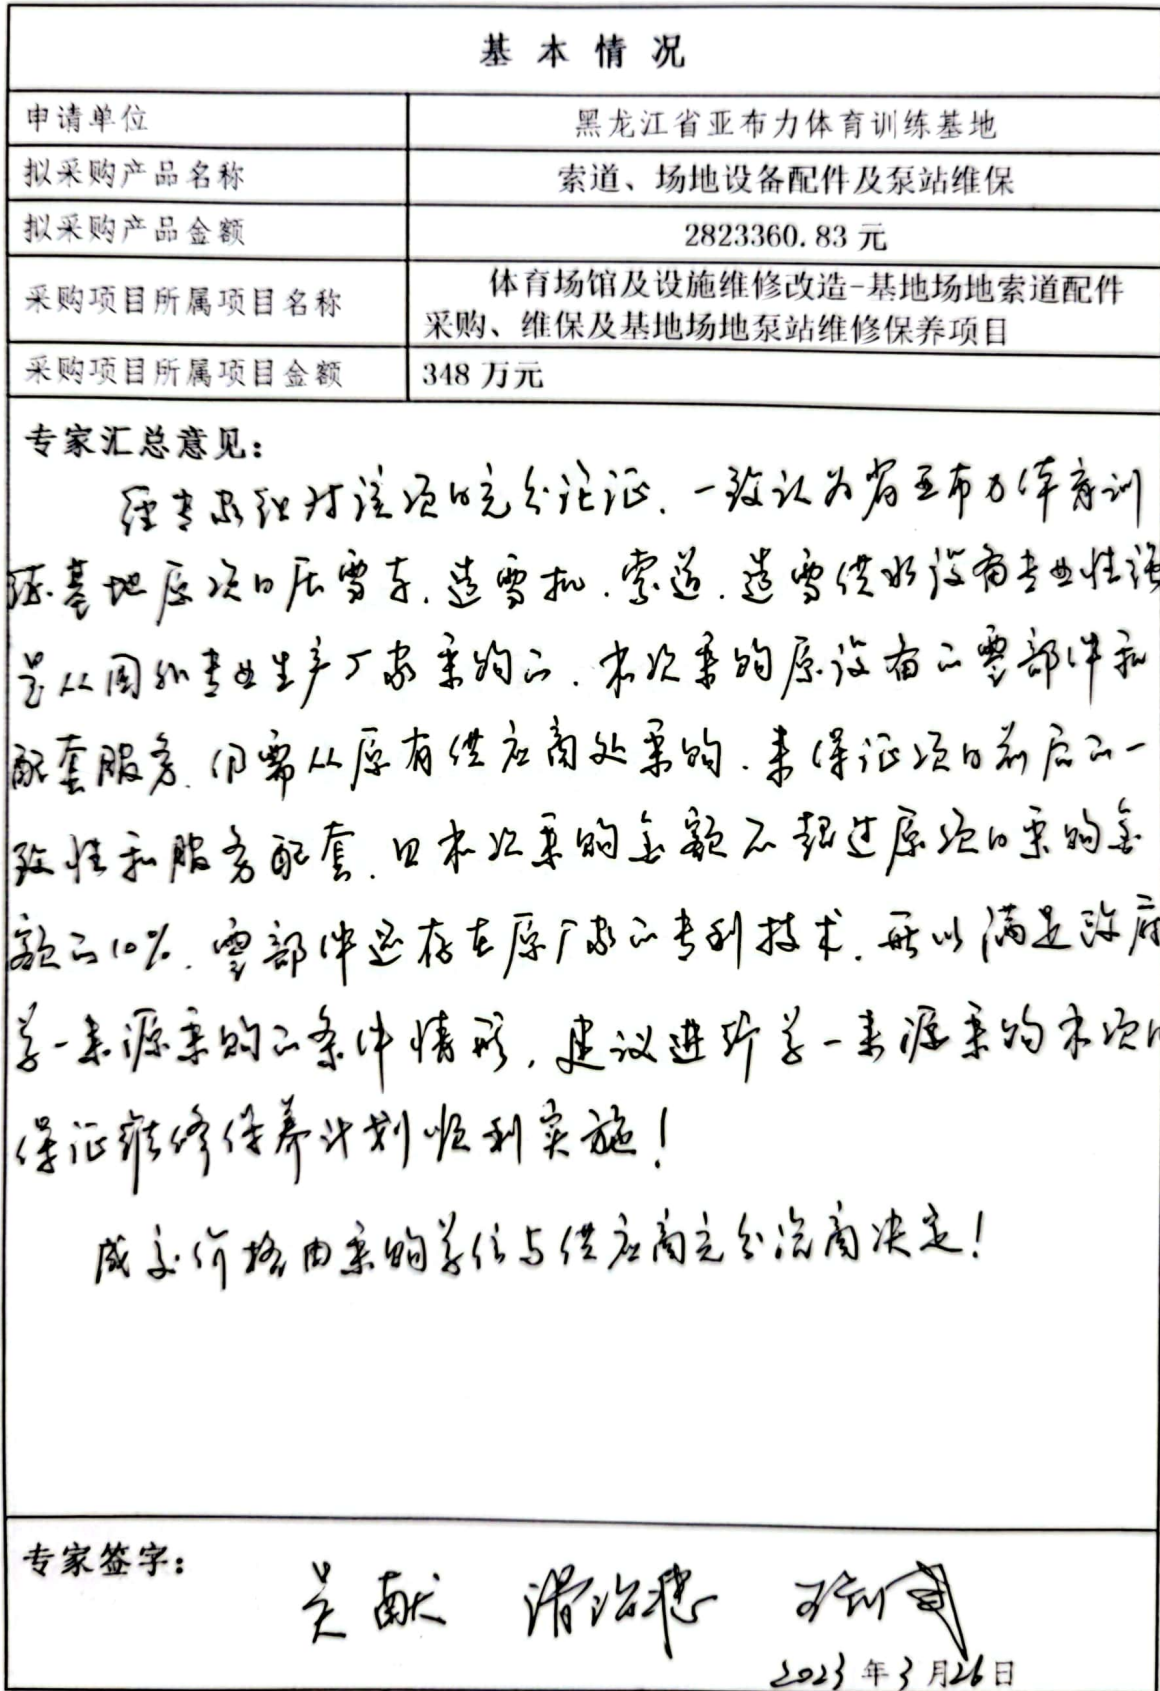 基本情况
申请单位
黑龙江省亚布力体育训练基地
拟采购产品名称
索道、场地设备配件及泵站维保
拟采购产品金额
2823360.83 元
采购项目所属项目名称
体育场馆及设施维修改造-基地场地索道配件
采购、维保及基地场地泵站维修保养项目
采购项目所属项目金额
348 万元
专家汇总意见：
经专家组对该项目充分论证，一致认为省亚布力体育训
练基地原项目压雪车、造雪机、索道、造雪供水设备专业性强
是从国外专业生产厂家采购的，本次采购原设备的零部件和
配套服务，仍需从原有供应商处采购，来保证项目前后的一
致性和服务配套，且本次采购金额不超过原项目采购金
额的10%，零部件还存在原厂家的专利技术，所以满足政府
单一来源采购的条件情形，建议进行单一来源采购本项目
保证维修保养计划顺利实施！
成交价格由采购单位与供应商充分洽商决定！
专家签字：
吴献
2023 年 3 月 26 日